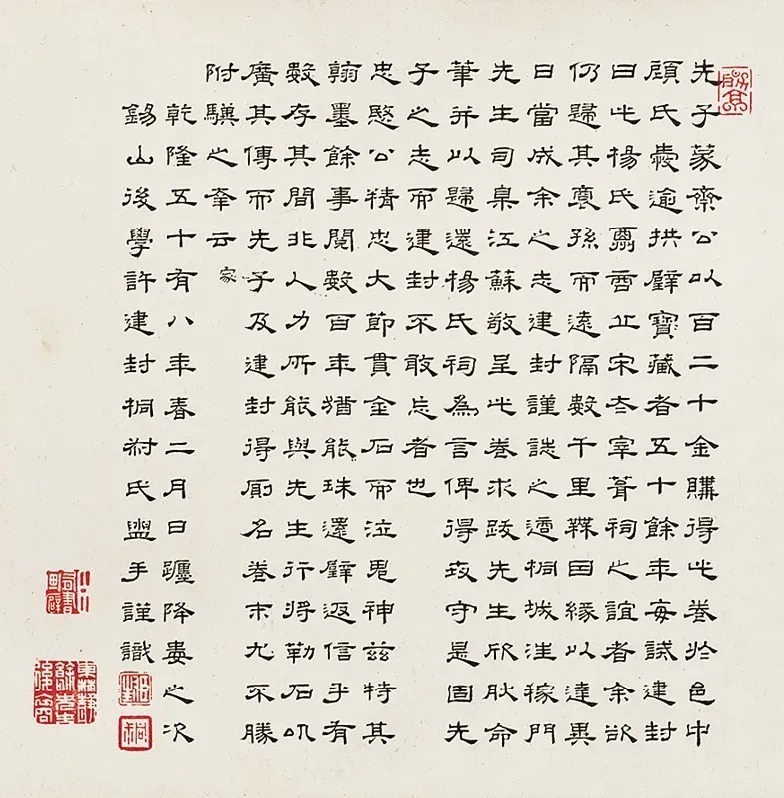 先子蒙齋公以百二十金購得此卷於邑中
顧氏愛逾拱璧寶藏者五十餘年每誡建封
曰此楊氏宋宰葺祠之誼者余欲
仍歸其裔孫而遠隔數千里鮮因緣以達異
日當成余之志建封謹誌之適桐城汪稼門
先生司臬江蘇敬呈此卷求跋先生欣肰命
筆并以歸還楊氏祠為言俾得守是固先
子之志而建封不敢忘者也
忠愍公精忠大節貫金石而泣鬼神茲特其
翰墨餘事閱數百年猶能珠還璧返信乎有
數存其間非人力所能與先生行將勒石以
廣其傳而先子及建封得厠名卷末尤不勝
附驥之幸云
家
乾隆五十有八年春二月日躔降婁之次
錫山後學許建封桐尌氏盥手謹識